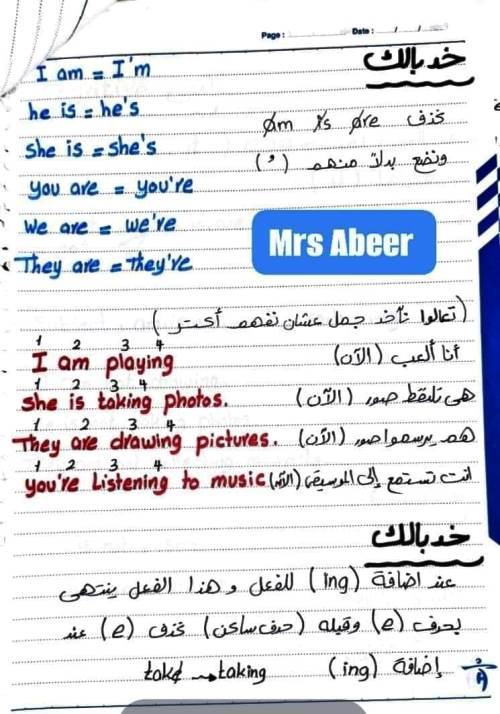 Page : Date : / /
خد بالك
I am = I'm
he is = he's
نحذف Am Is Are
She is = she's
ونضع بدلاً منهم (')
you are = you're
We are = we're
Mrs Abeer
They are = They're
(تعالوا نأخد جمل عشان نفهم أكتر)
1 2 3 4
I am playing أنا ألعب (الآن)
1 2 3 4
She is taking photos. هى تلتقط صور (الآن)
1 2 3 4
They are drawing pictures. هم يرسموا صور (الآن)
1 2 3 4
you're Listening to music انت تستمع إلى الموسيقى (الآن)
خد بالك
عند اضافة (ing) للفعل وهذا الفعل ينتهى
بحرف (e) وقبله (حرف ساكن) نحذف (e) عند
إضافة (ing) take → taking